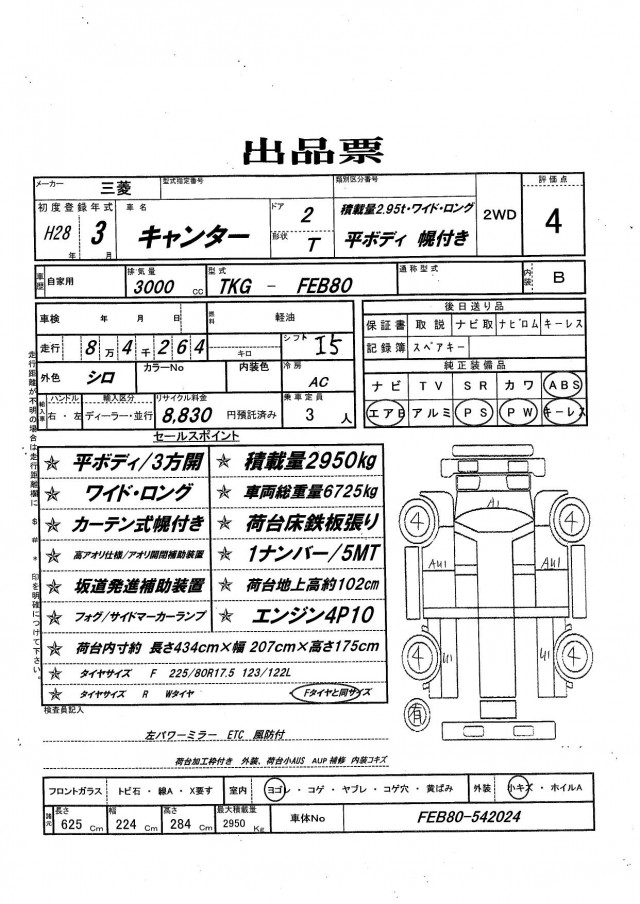 出品票
メーカー 三菱 型式指定番号 類別区分番号 評価点
初度登録年式 車名 ドア 2 積載量2.95t・ワイド・ロング 2WD 4
H28年 3月 キャンター 形状 T 平ボディ 幌付き
車歴 自家用 排気量 3000cc 型式 TKG - FEB80 通称型式 内装 B
車検 年 月 日 燃料 軽油 後日送り品
走行 8万4千264 キロ シフト I5 保証書 取説 ナビ取 ナビロム キーレス
記録簿 スペアキー
外色 シロ カラーNo 内装色 冷房 AC 純正装備品
ナビ TV SR カワ ABS
輸入車 ハンドル 右・左 輸入区分 ディーラー・並行 リサイクル料金 8,830 円預託済み 乗車定員 3人
エアB アルミ PS PW キーレス
走行距離が不明の場合は走行距離欄に $ # * 印を明確につけて下さい。
セールスポイント
☆ 平ボディ/3方開 ☆ 積載量2950kg
☆ ワイド・ロング ☆ 車両総重量6725kg
☆ カーテン式幌付き ☆ 荷台床鉄板張り
☆ 高アオリ仕様/アオリ開閉補助装置 ☆ 1ナンバー/5MT
☆ 坂道発進補助装置 ☆ 荷台地上高約102cm
☆ フォグ/サイドマーカーランプ ☆ エンジン4P10
☆ 荷台内寸約 長さ434cm×幅 207cm×高さ175cm
☆ タイヤサイズ F 225/80R17.5 123/122L
☆ タイヤサイズ R Wタイヤ Fタイヤと同サイズ
A1
4 4
AU1 AU1
4 U1 U1 4
有
検査員記入
左パワーミラー ETC 風防付
荷台加工枠付き 外装、荷台小AUS AUP補修 内装コキズ
フロントガラス トビ石・線A・X要す 室内 ヨゴレ・コゲ・ヤブレ・コゲ穴・黄ばみ 外装 小キズ・ホイルA
諸元 長さ 625Cm 幅 224Cm 高さ 284Cm 最大積載量 2950Kg 車体No FEB80-542024